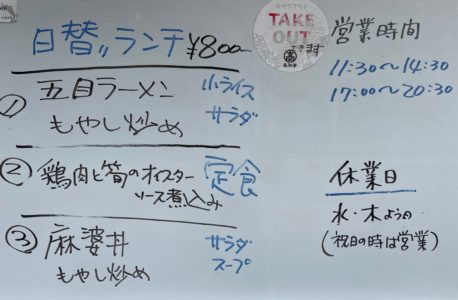 日替リランチ ¥800-
① 五目ラーメン 小ライス
もやし炒め サラダ
② 鶏肉と筍のオイスター 定食
ソース煮込み
③ 麻婆丼 サラダ
もやし炒め スープ
TAKE
OUT
できます
営業時間
11:30〜14:30
17:00〜20:30
休業日
水・木ようの
(祝日の時は営業)